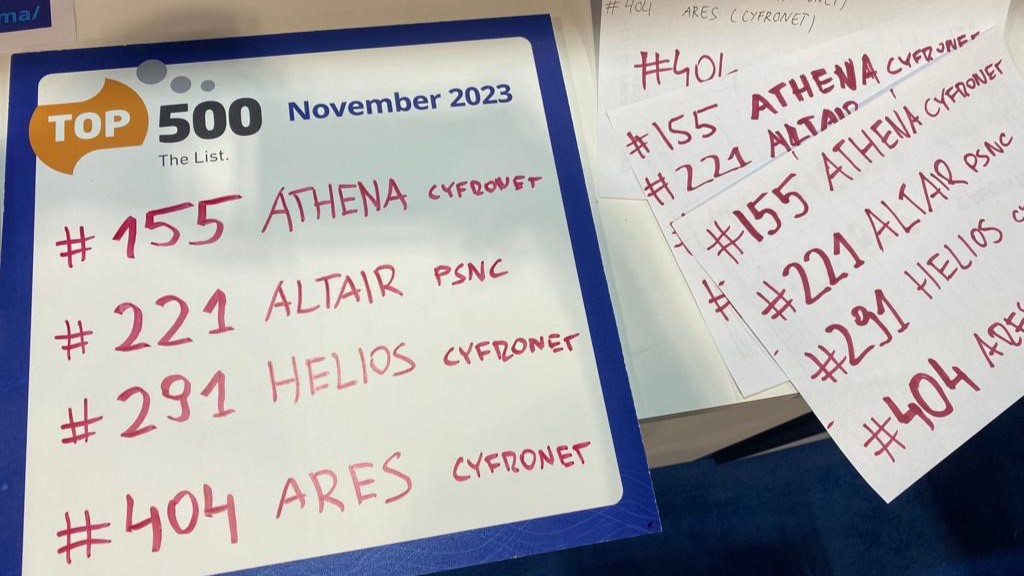 ma/
TOP 500
The List.
November 2023
# 155 ATHENA CYFRONET
# 221 ALTAIR PSNC
# 291 HELIOS CYFRONET
# 404 ARES CYFRONET
# 404 ARES (CYFRONET)
#404
#155 ATHENA CYFRONET
#221 ALTAIR
#155 ATHENA CYFRONET
#221 ALTAIR PSNC
#291 HELIOS
#404 ARES